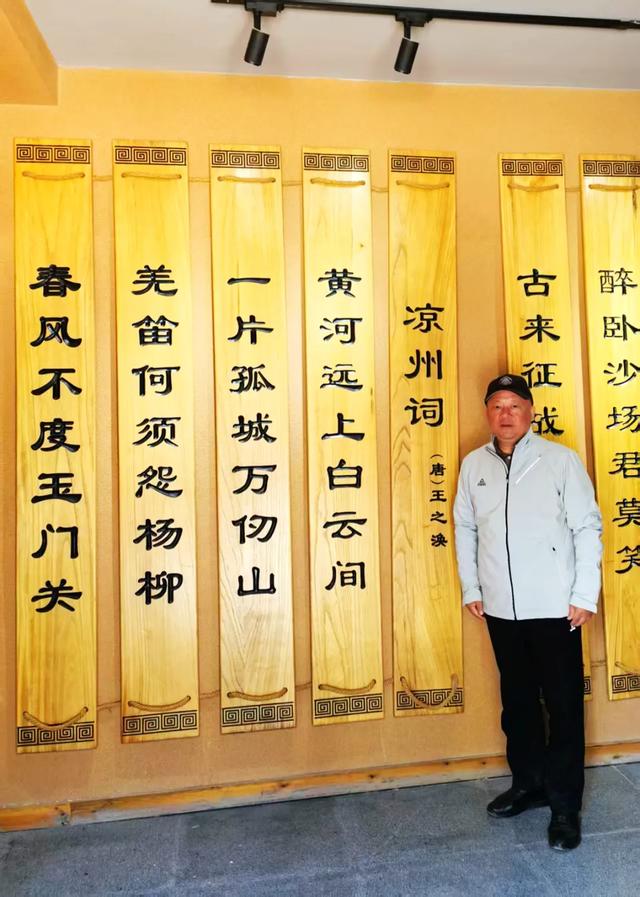 醉卧沙场君莫笑
古来征战
凉州词
（唐）王之涣
黄河远上白云间
一片孤城万仞山
羌笛何须怨杨柳
春风不度玉门关